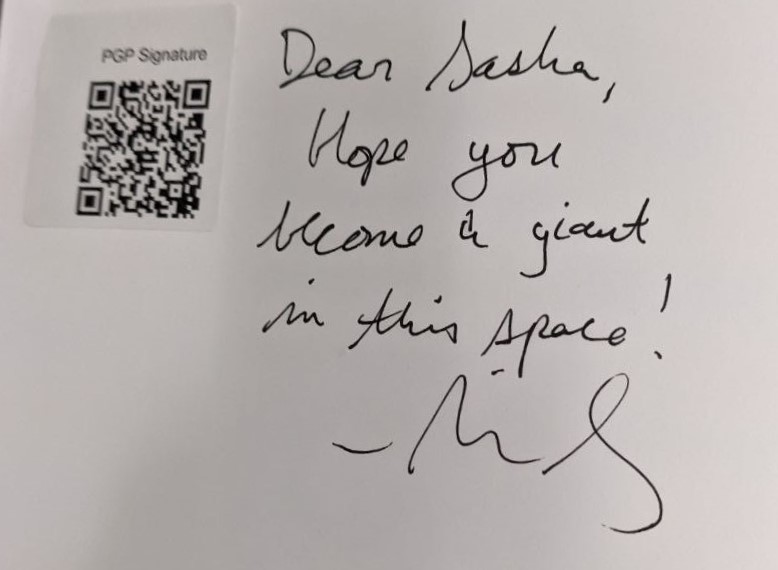 PGP Signature
Dear Sasha,
Hope you
become a giant
in this space!